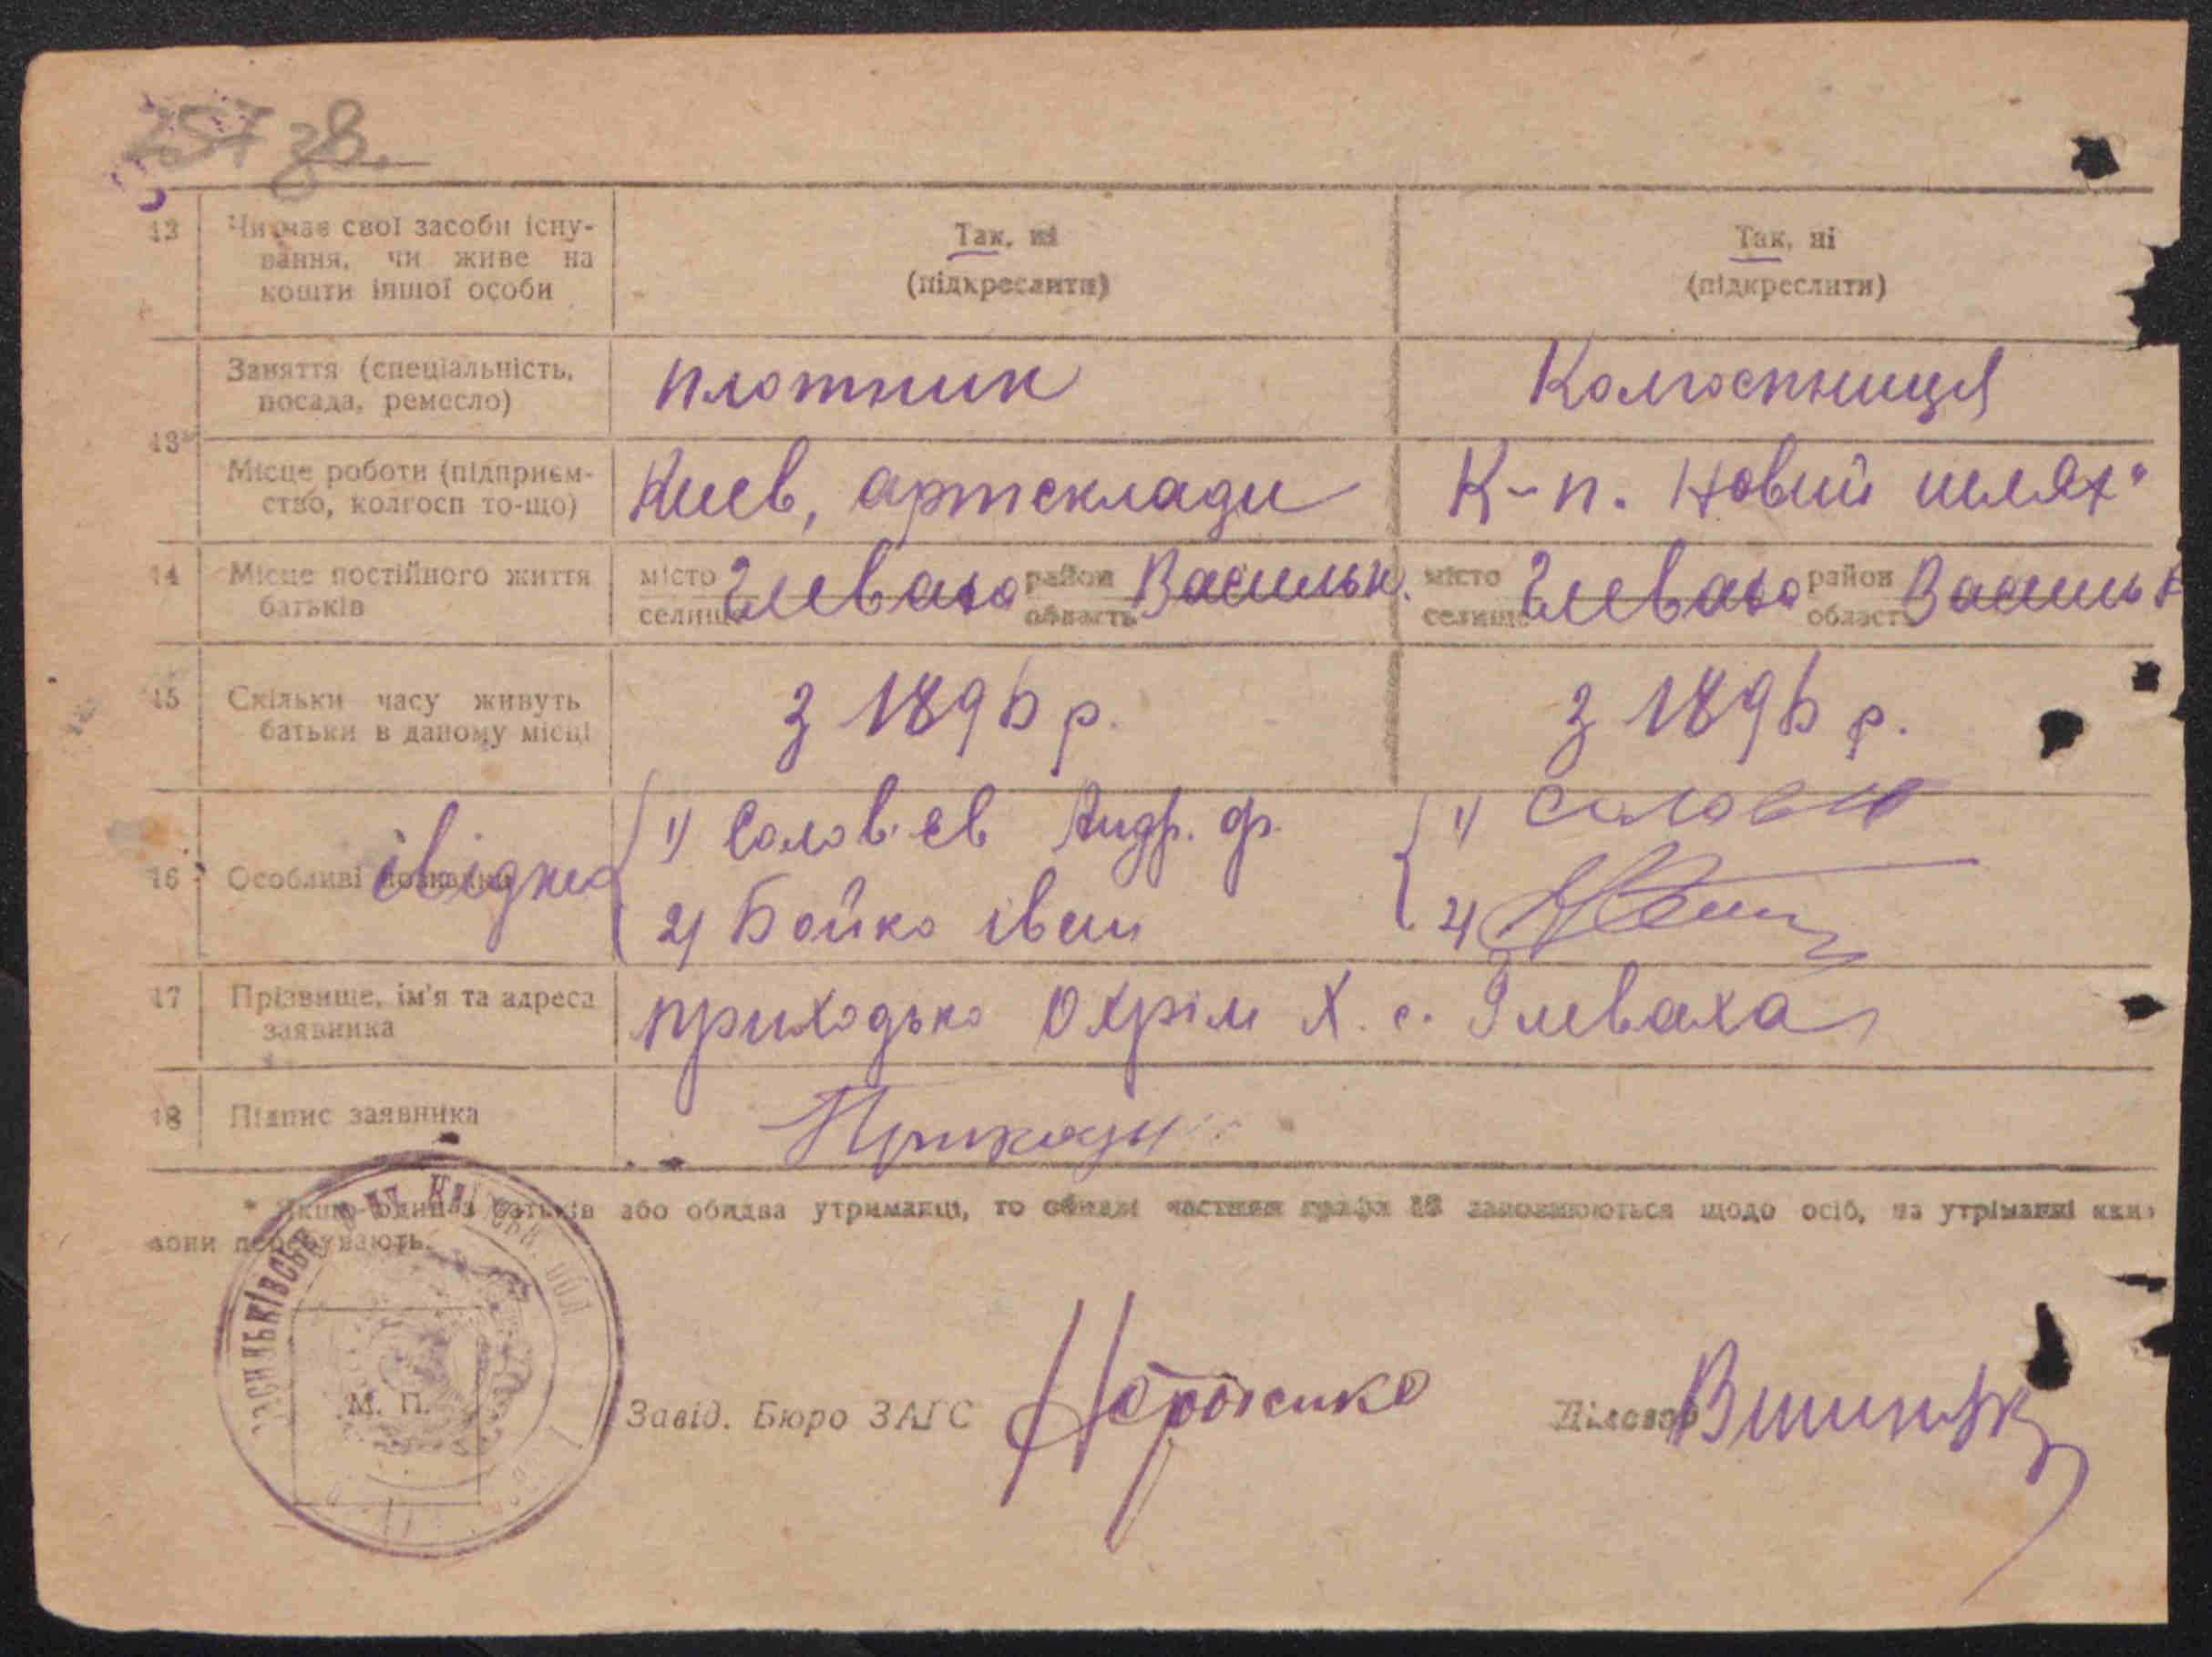 257 зв.
13 Чи має свої засоби існу-
вання, чи живе на
кошти іншої особи
Так, ні
(підкреслити)
Так, ні
(підкреслити)
13*
Заняття (спеціальність,
посада, ремесло)
плотник
Колгоспниця
Місце роботи (підприєм-
ство, колгосп то-що)
Киев, артсклади
К-п. Новий шлях"
14 Місце постійного життя
батьків
місто
селище
Глеваха
район
область
Васильк.
місто
селище
Глеваха
район
область
Васильк
15 Скільки часу живуть
батьки в даному місці
з 1896 р.
з 1896 р.
16 Особливі познаки
свідки
1) Солов'єв Андр. ф.
2) Бойко іван
1) Соловю
2)
17 Прізвище, ім'я та адреса
заявника
приходько Охрім Х. с. Глеваха
18 Підпис заявника
Приходь
* Якщо один з батьків або обидва утриманці, то обидві частини графи 13 заповнюються щодо осіб, на утриманні яких
вони перебувають.
М. П.
Завід. Бюро ЗАГС
Діловод